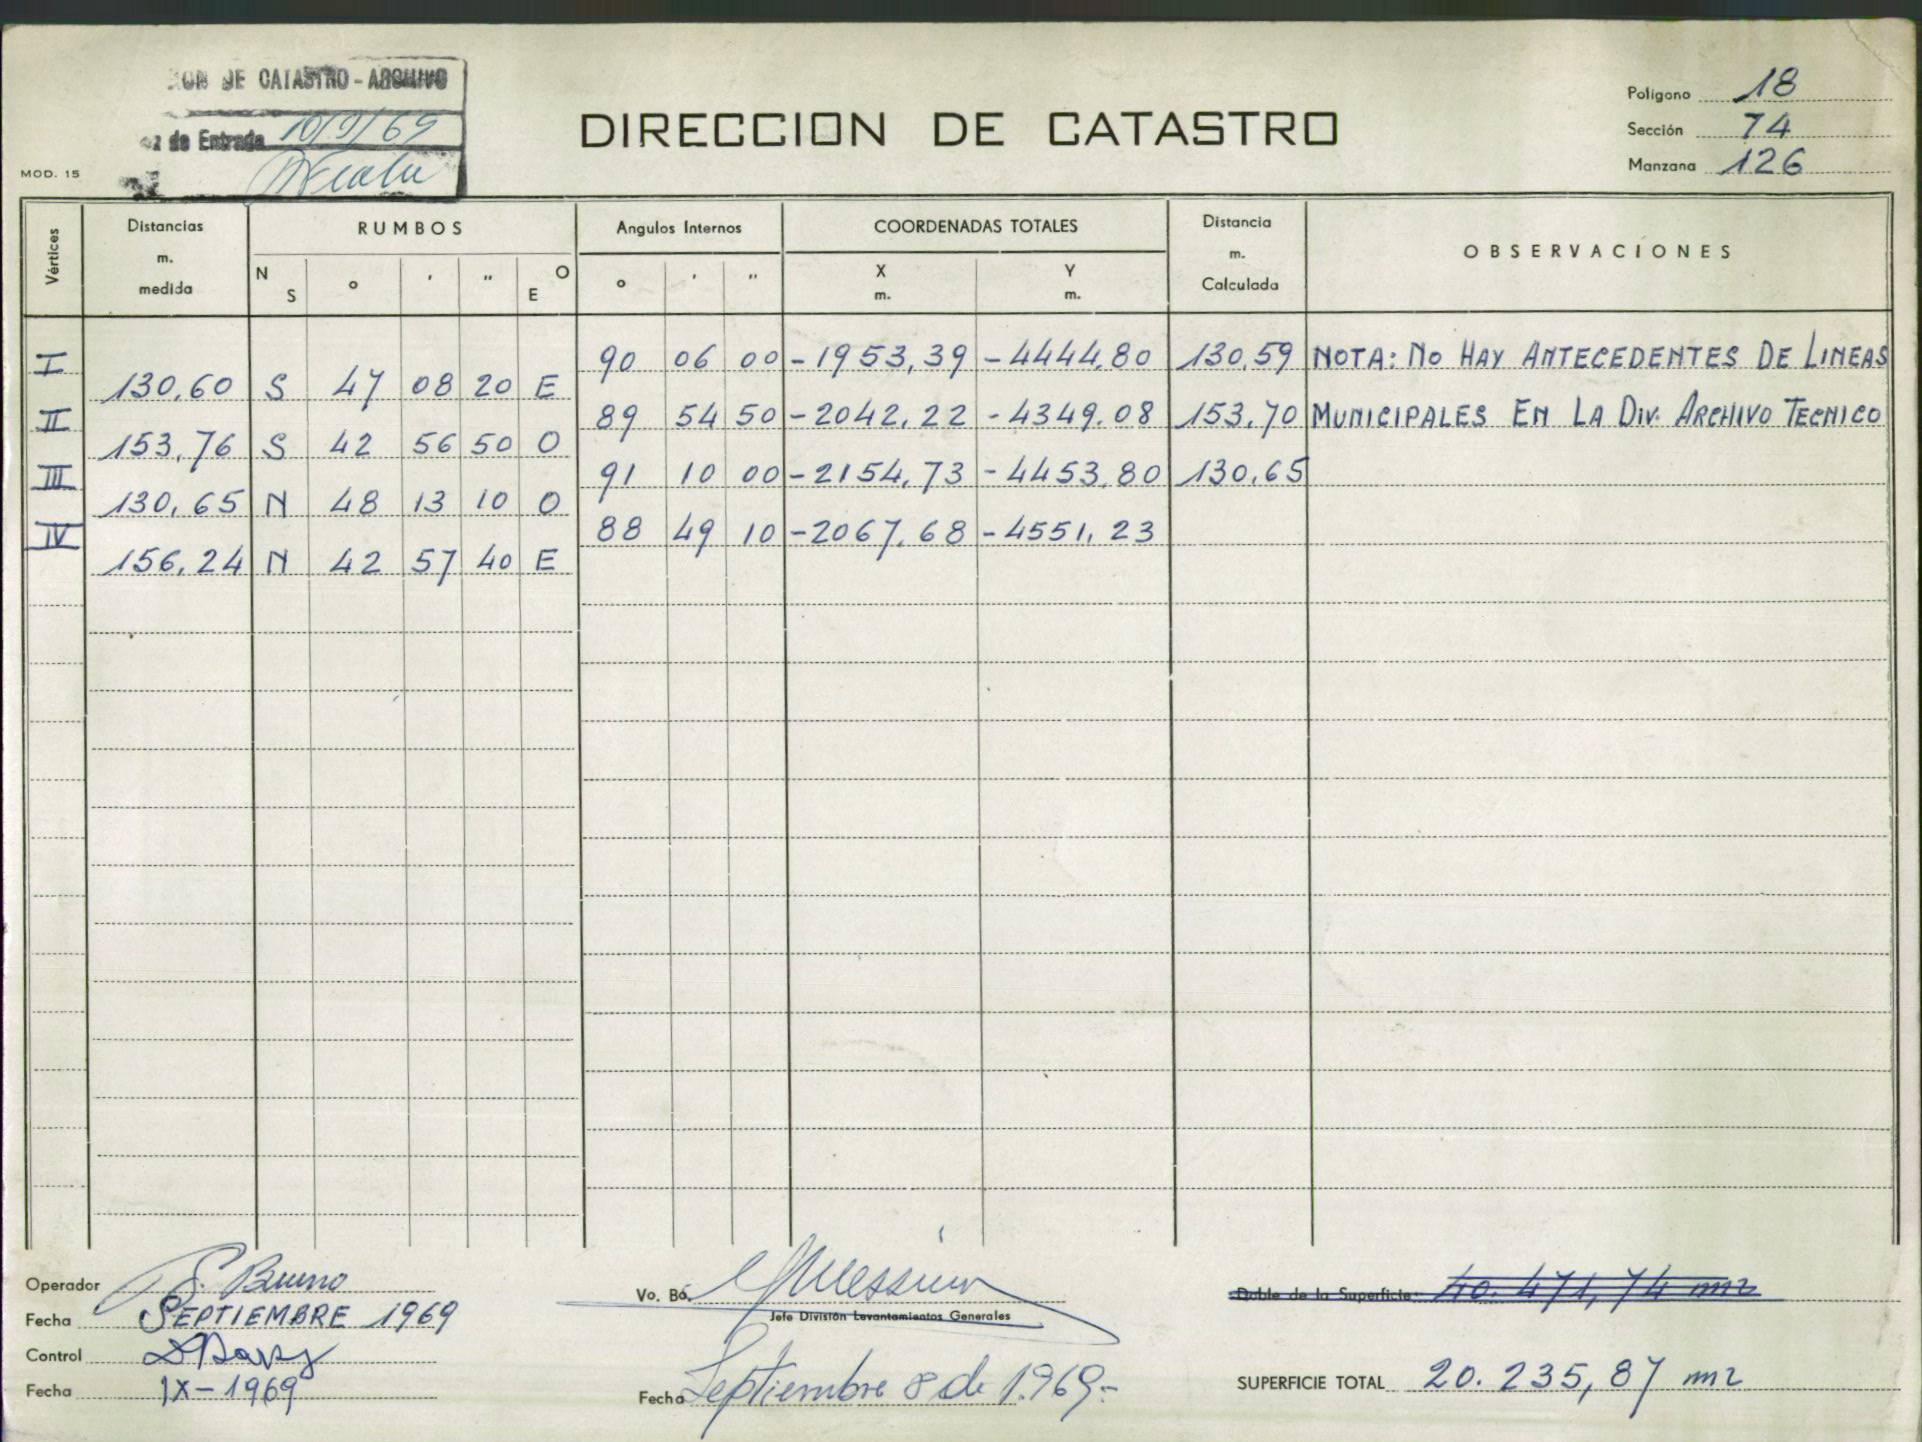 DE CATASTRO - ARCHIVO
de Entrada 10/9/69
MOD. 15
DIRECCION DE CATASTRO
Polígono 18
Sección 74
Manzana 126
Vértices
Distancias m. medida
RUMBOS
N S ° ' " O E
Angulos Internos
° ' "
COORDENADAS TOTALES
X m. Y m.
Distancia m. Calculada
OBSERVACIONES
I 90 06 00 -1953,39 -4444,80 130,59 NOTA: NO HAY ANTECEDENTES DE LINEAS
130,60 S 47 08 20 E
II 89 54 50 -2042,22 -4349.08 153,70 MUNICIPALES EN LA DIV. ARCHIVO TECNICO
153,76 S 42 56 50 O
III 91 10 00 -2154,73 -4453,80 130,65
130,65 N 48 13 10 O
IV 88 49 10 -2067,68 -4551,23
156,24 N 42 57 40 E
Operador S. Bruno
Fecha SEPTIEMBRE 1969
Control
Fecha IX-1969
Vo. Bo.
Jefe División Levantamientos Generales
Fecha Septiembre 8 de 1.969.-
Doble de la Superficie: 40.471,74 m2
SUPERFICIE TOTAL 20.235,87 m2